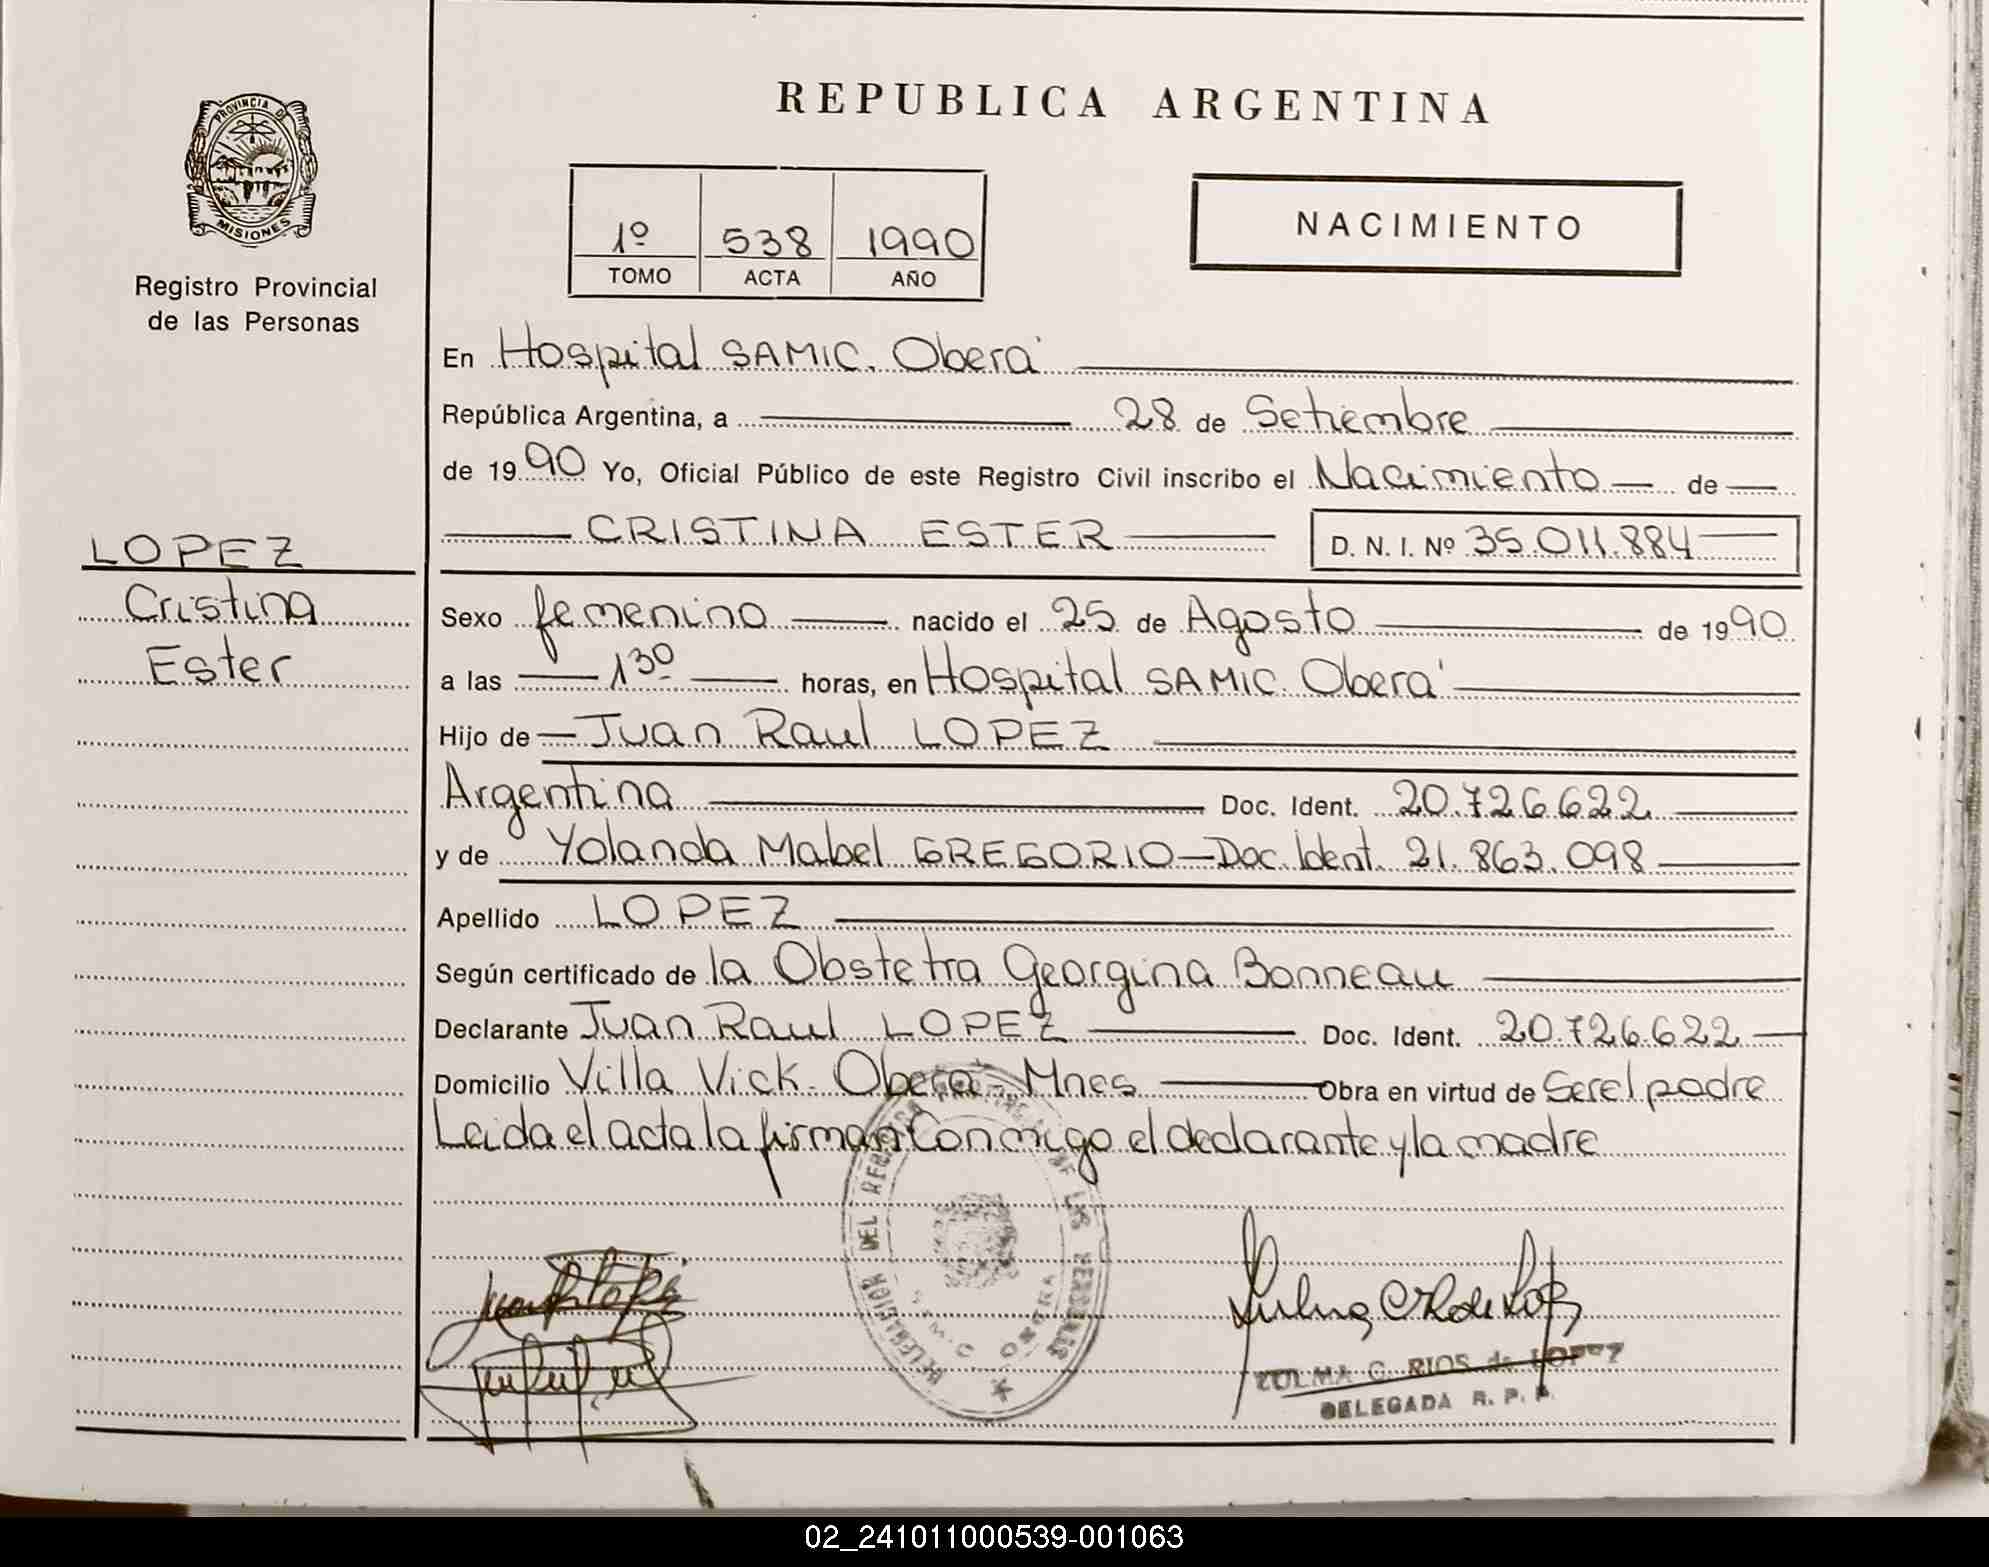 PROVINCIA DE
MISIONES
Registro Provincial
de las Personas
LOPEZ
Cristina
Ester
REPUBLICA ARGENTINA
1º 538 1990
TOMO ACTA AÑO
NACIMIENTO
En Hospital SAMIC. Oberá
República Argentina, a 28 de Setiembre
de 1990 Yo, Oficial Público de este Registro Civil inscribo el Nacimiento de
CRISTINA ESTER D. N. I. Nº 35.011.884
Sexo femenino nacido el 25 de Agosto de 1990
a las 13º horas, en Hospital SAMIC. Oberá
Hijo de Juan Raul LOPEZ
Argentina Doc. Ident. 20.726.622
y de Yolanda Mabel GREGORIO-Doc. Ident. 21.863.098
Apellido LOPEZ
Según certificado de la Obstetra Georgina Bonneau
Declarante Juan Raul LOPEZ Doc. Ident. 20.726.622
Domicilio Villa Vick. Oberá- Mnes Obra en virtud de Ser el padre
Leida el acta la firman conmigo el declarante y la madre
DELEGACION DEL REGISTRO PROVINCIAL DE LAS PERSONAS
OBERA
ZULMA C. RIOS de LOPEZ
DELEGADA R. P. P.
02_241011000539-001063